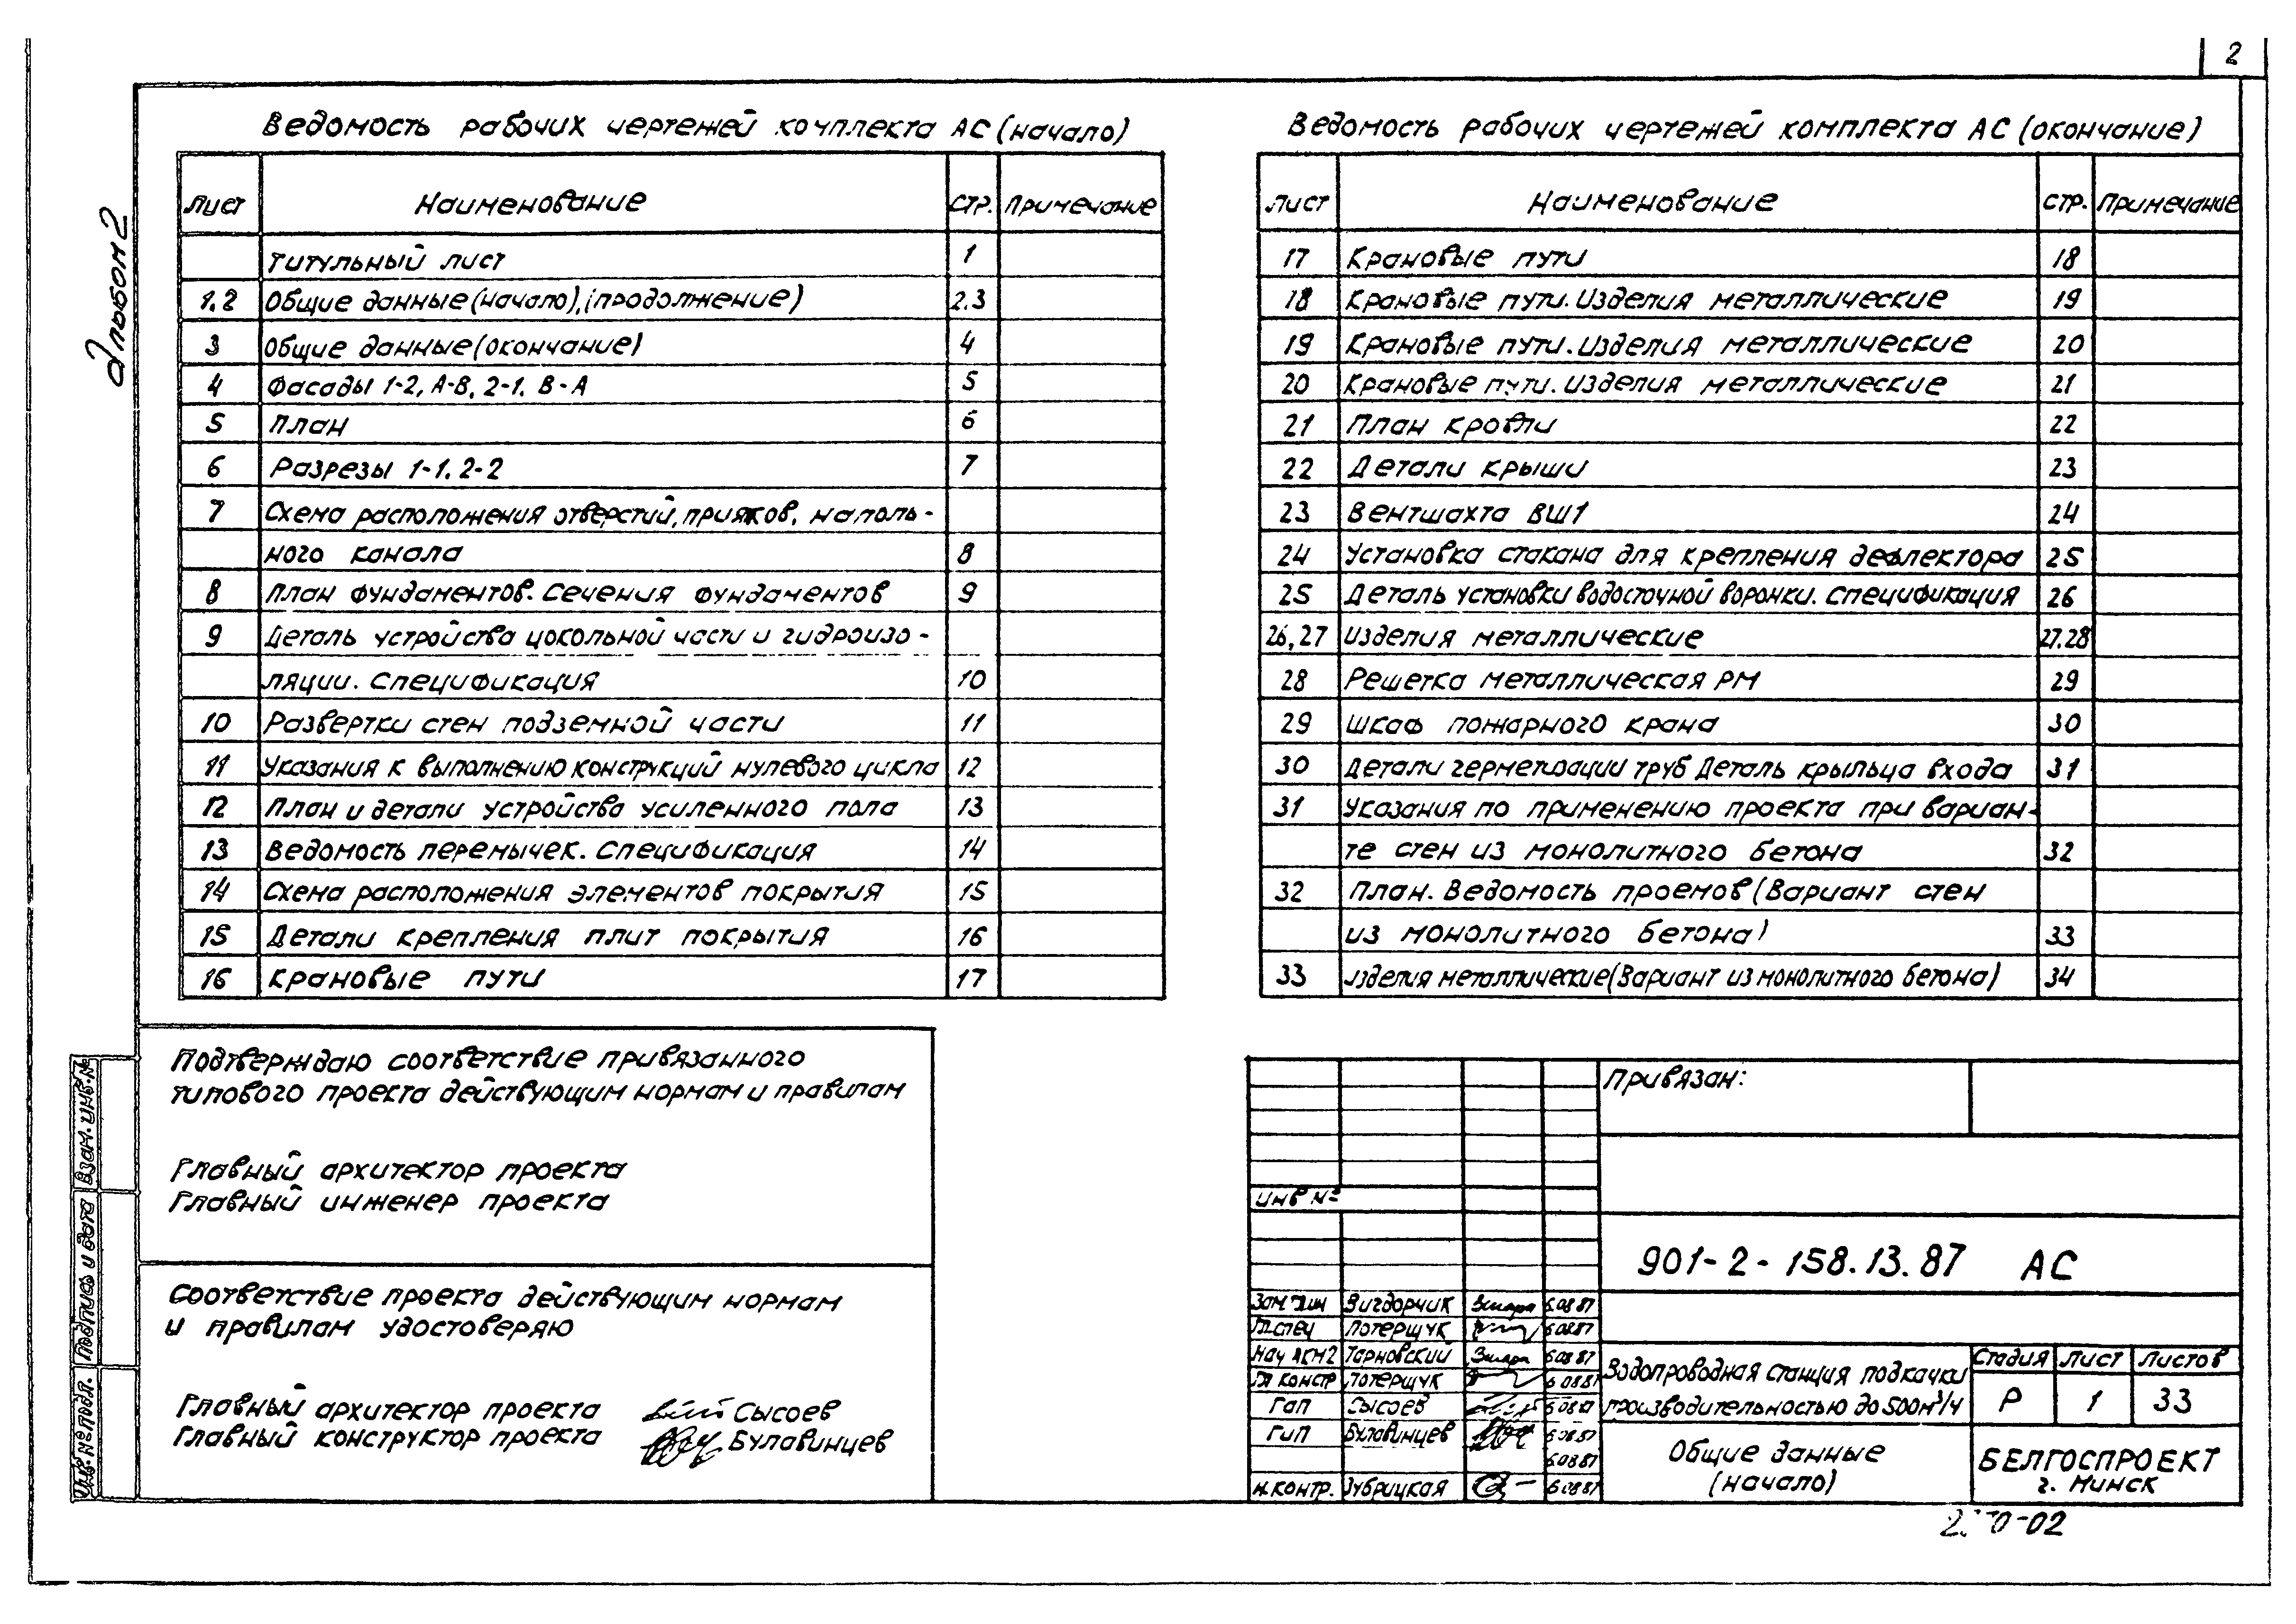 2
Альбом 2
Ведомость рабочих чертежей комплекта АС (начало)
Лист Наименование Стр. Примечание
Титульный лист 1
1,2 Общие данные (начало), (продолжение) 2,3
3 Общие данные (окончание) 4
4 Фасады 1-2, А-В, 2-1, В-А 5
5 План 6
6 Разрезы 1-1, 2-2 7
7 Схема расположения отверстий, приямков, наполь-
ного канала 8
8 План фундаментов. Сечения фундаментов 9
9 Деталь устройства цокольной части и гидроизо-
ляции. Спецификация 10
10 Развертки стен подземной части 11
11 Указания к выполнению конструкций нулевого цикла 12
12 План и детали устройства усиленного пола 13
13 Ведомость перемычек. Спецификация 14
14 Схема расположения элементов покрытия 15
15 Детали крепления плит покрытия 16
16 Крановые пути 17
Ведомость рабочих чертежей комплекта АС (окончание)
Лист Наименование Стр. Примечание
17 Крановые пути 18
18 Крановые пути. Изделия металлические 19
19 Крановые пути. Изделия металлические 20
20 Крановые пути. Изделия металлические 21
21 План кровли 22
22 Детали крыши 23
23 Вентшахта ВШ1 24
24 Установка стакана для крепления дефлектора 25
25 Деталь установки водосточной воронки. Спецификация 26
26,27 Изделия металлические 27,28
28 Решетка металлическая РМ 29
29 Шкаф пожарного крана 30
30 Детали герметизации труб Деталь крыльца входа 31
31 Указания по применению проекта при вариан-
те стен из монолитного бетона 32
32 План. Ведомость проемов (Вариант стен
из монолитного бетона) 33
33 Изделия металлические (Вариант из монолитного бетона) 34
Подтверждаю соответствие привязанного
типового проекта действующим нормам и правилам
Главный архитектор проекта
Главный инженер проекта
Соответствие проекта действующим нормам
и правилам удостоверяю
Главный архитектор проекта Сысоев
Главный конструктор проекта Булавинцев
Взам. инв. №
Подпись и дата
Инв. № подл.
Привязан:
Инв №
901-2-158.13.87 АС
Вигдорчик 6.08.87
Гл.спец Потерщук 6.08.87
Нач АСМ2 Тарновский 6.08.87
Гл констр Потерщук 6.08.87
ГАП Сысоев 6.08.87
ГИП Булавинцев 6.08.87
6.08.87
Н.контр. Зубрицкая 6.08.87
Водопроводная станция подкачки
производительностью до 500 м³/ч
Стадия Лист Листов
Р 1 33
Общие данные
(начало)
БЕЛГОСПРОЕКТ
г. Минск